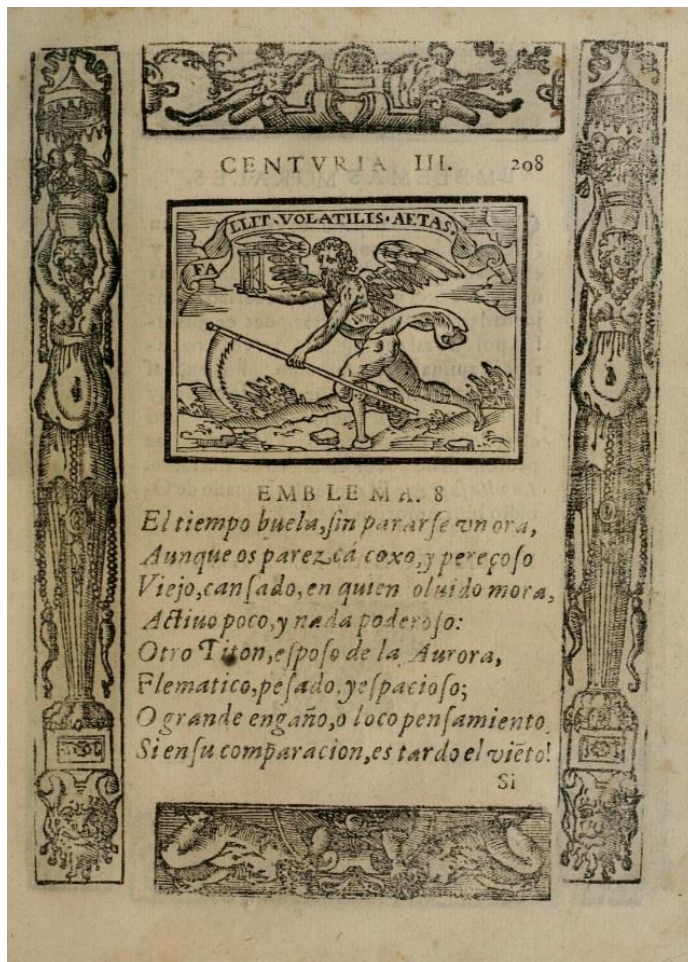 CENTVRIA III. 208
FALLIT·VOLATILIS·AETAS.
EMBLEMA. 8
El tiempo buela, ſin pararſe vn ora,
Aunque os parezca coxo, y pereçoſo
Viejo, canſado, en quien oluido mora,
Actiuo poco, y nada poderoſo:
Otro Titon, eſpoſo de la Aurora,
Flematico, peſado, y eſpacioſo;
O grande engaño, o loco penſamiento
Si en ſu comparacion, es tardo el viẽto!
Si